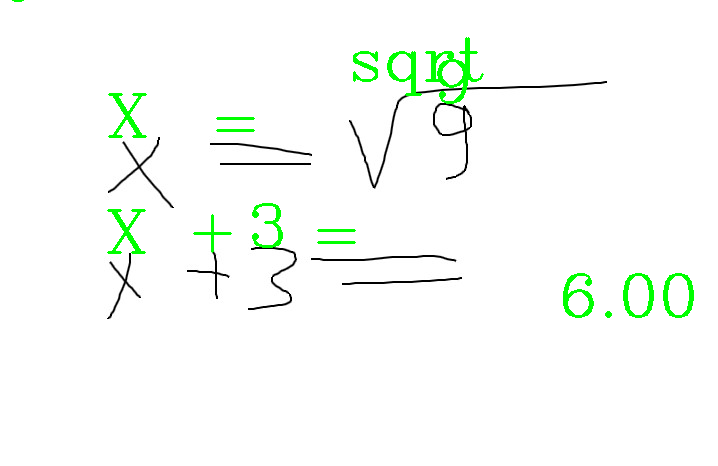 sqrt
X = 9
X = √9
X + 3 =
X + 3 =
6.00